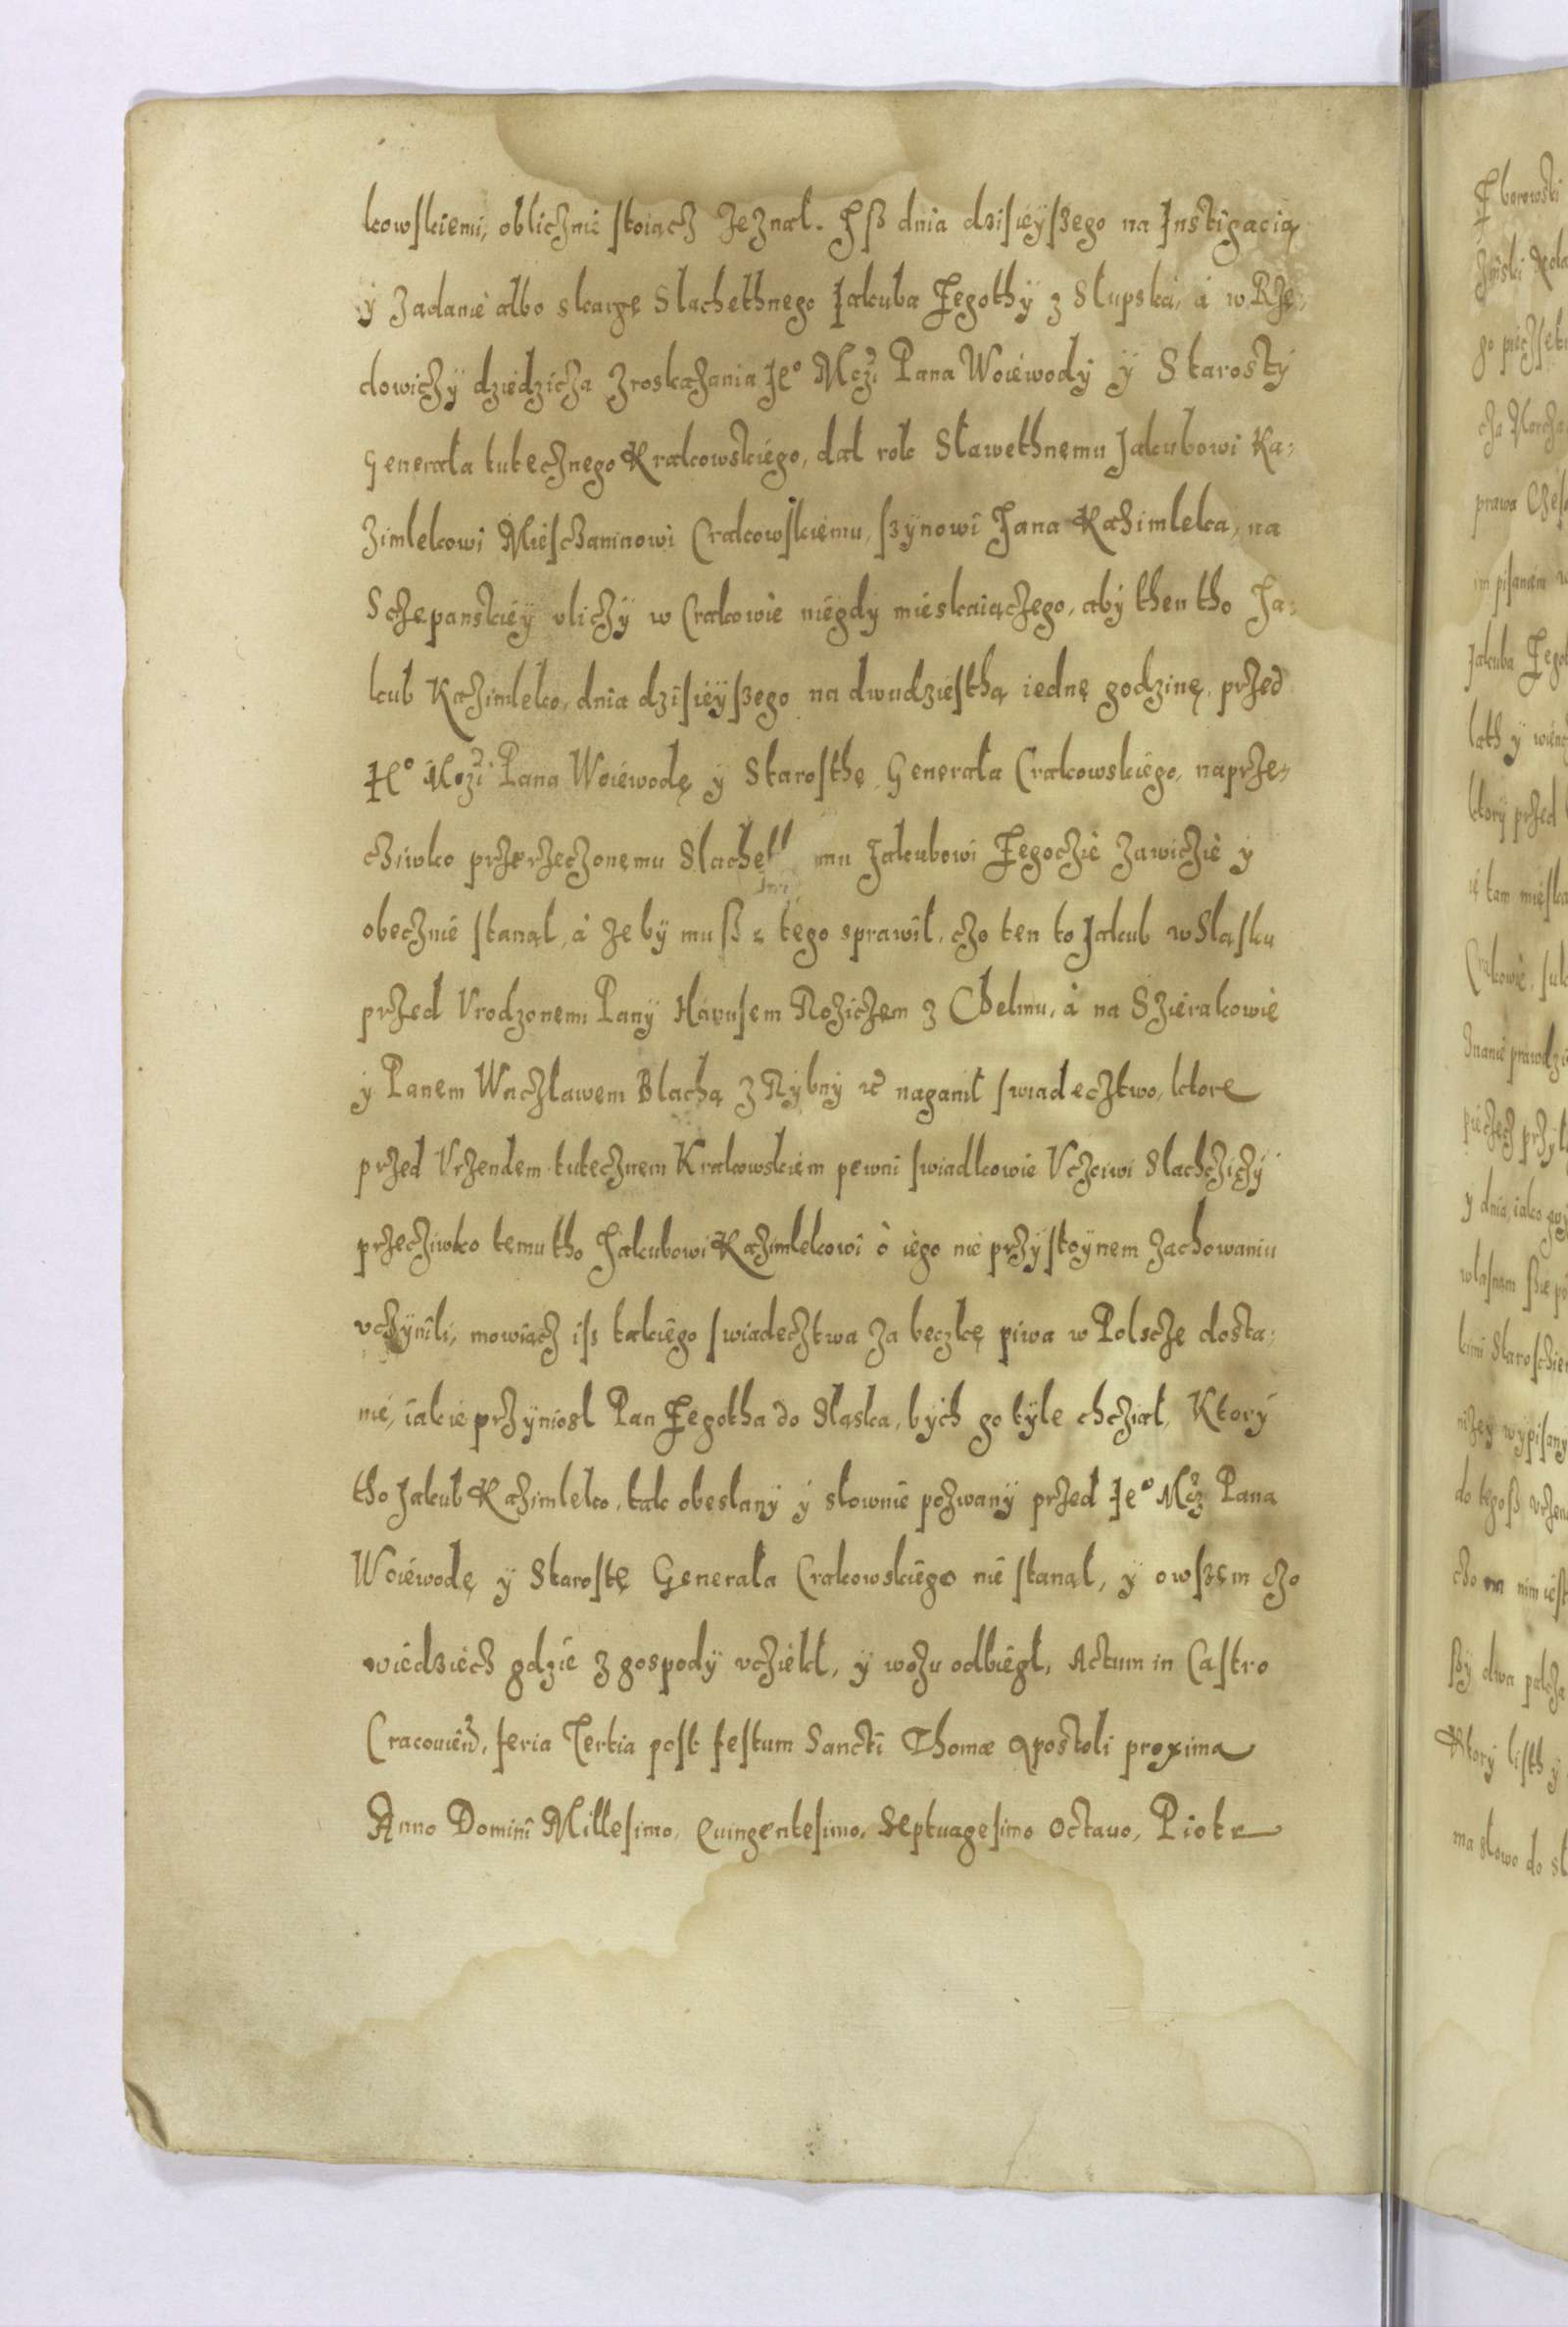 kowskiemi, oblicznie stoiącz zeznał. Iß dnia dzisieyszego na Instigacią
y Zadanie albo skargę Slachethnego Jakuba Zegothy z Słupska, á w Rzę-
dowiczy dziedzicza zroskazania Je° Mczi Pana Woiewody y Starosty
Generała tutecznego Krakowskiego, dał rok Sławethnemu Jakubowi Ka-
zimlekowi Miesczaninowi Crakowskiemu, szynowi Jana Kazimleka, na
Sczepanskiey vliczy w Crakowie niegdy mieskaiączego, aby then tho Ja-
kub Kazimleko, dnia dzisieyszego na dwudziesthą iednę godzinę, przed
Je° Mczi Pana Woiewodę y Starosthę Generała Crakowskiego, naprze-
cziwko przerzeczonemu Slacheth mu Jakubowi Zegoczie Zawiczie y
obecznie stanął, á zeby muß tego sprawił, czo ten to Jakub w Sląsku
przed Vrodzonemi Pany Hanusem Roziczem z Chelmu, á na Szierakowie
y Panem Waczławem Blachą z Rybny naganił swiadecztwo, ktore
przed Vrzendem tutecznem Krakowskiem pewni swiadkowie Vczciwi Slachcziczy
przecziwko temu tho Jakubowi Kazimlekowi ò iego nie przystoynem zachowaniu
vczynili, mowiącz iß takiego swiadecztwa za beczkę piwa w Polscze dosta-
nie, iakie przyniosł Pan Zegotha do Sląska, bych go tyle chcział, Ktory
tho Jakub Kazimleko, tak obesłany y słownie pozwany przed Je° Mcz Pana
Woiewodę y Starostę Generała Crakowskiego nie stanął, y owszem czo
wiedziech gdzie z gospody vcziekł, y wozu odbiegł, Actum in Castro
Cracouien, feria Tertia post festum Sancti Thomæ Apostoli proxima
Anno Domini Millesimo, Quingentesimo, Septuagesimo Octauo, Piotr